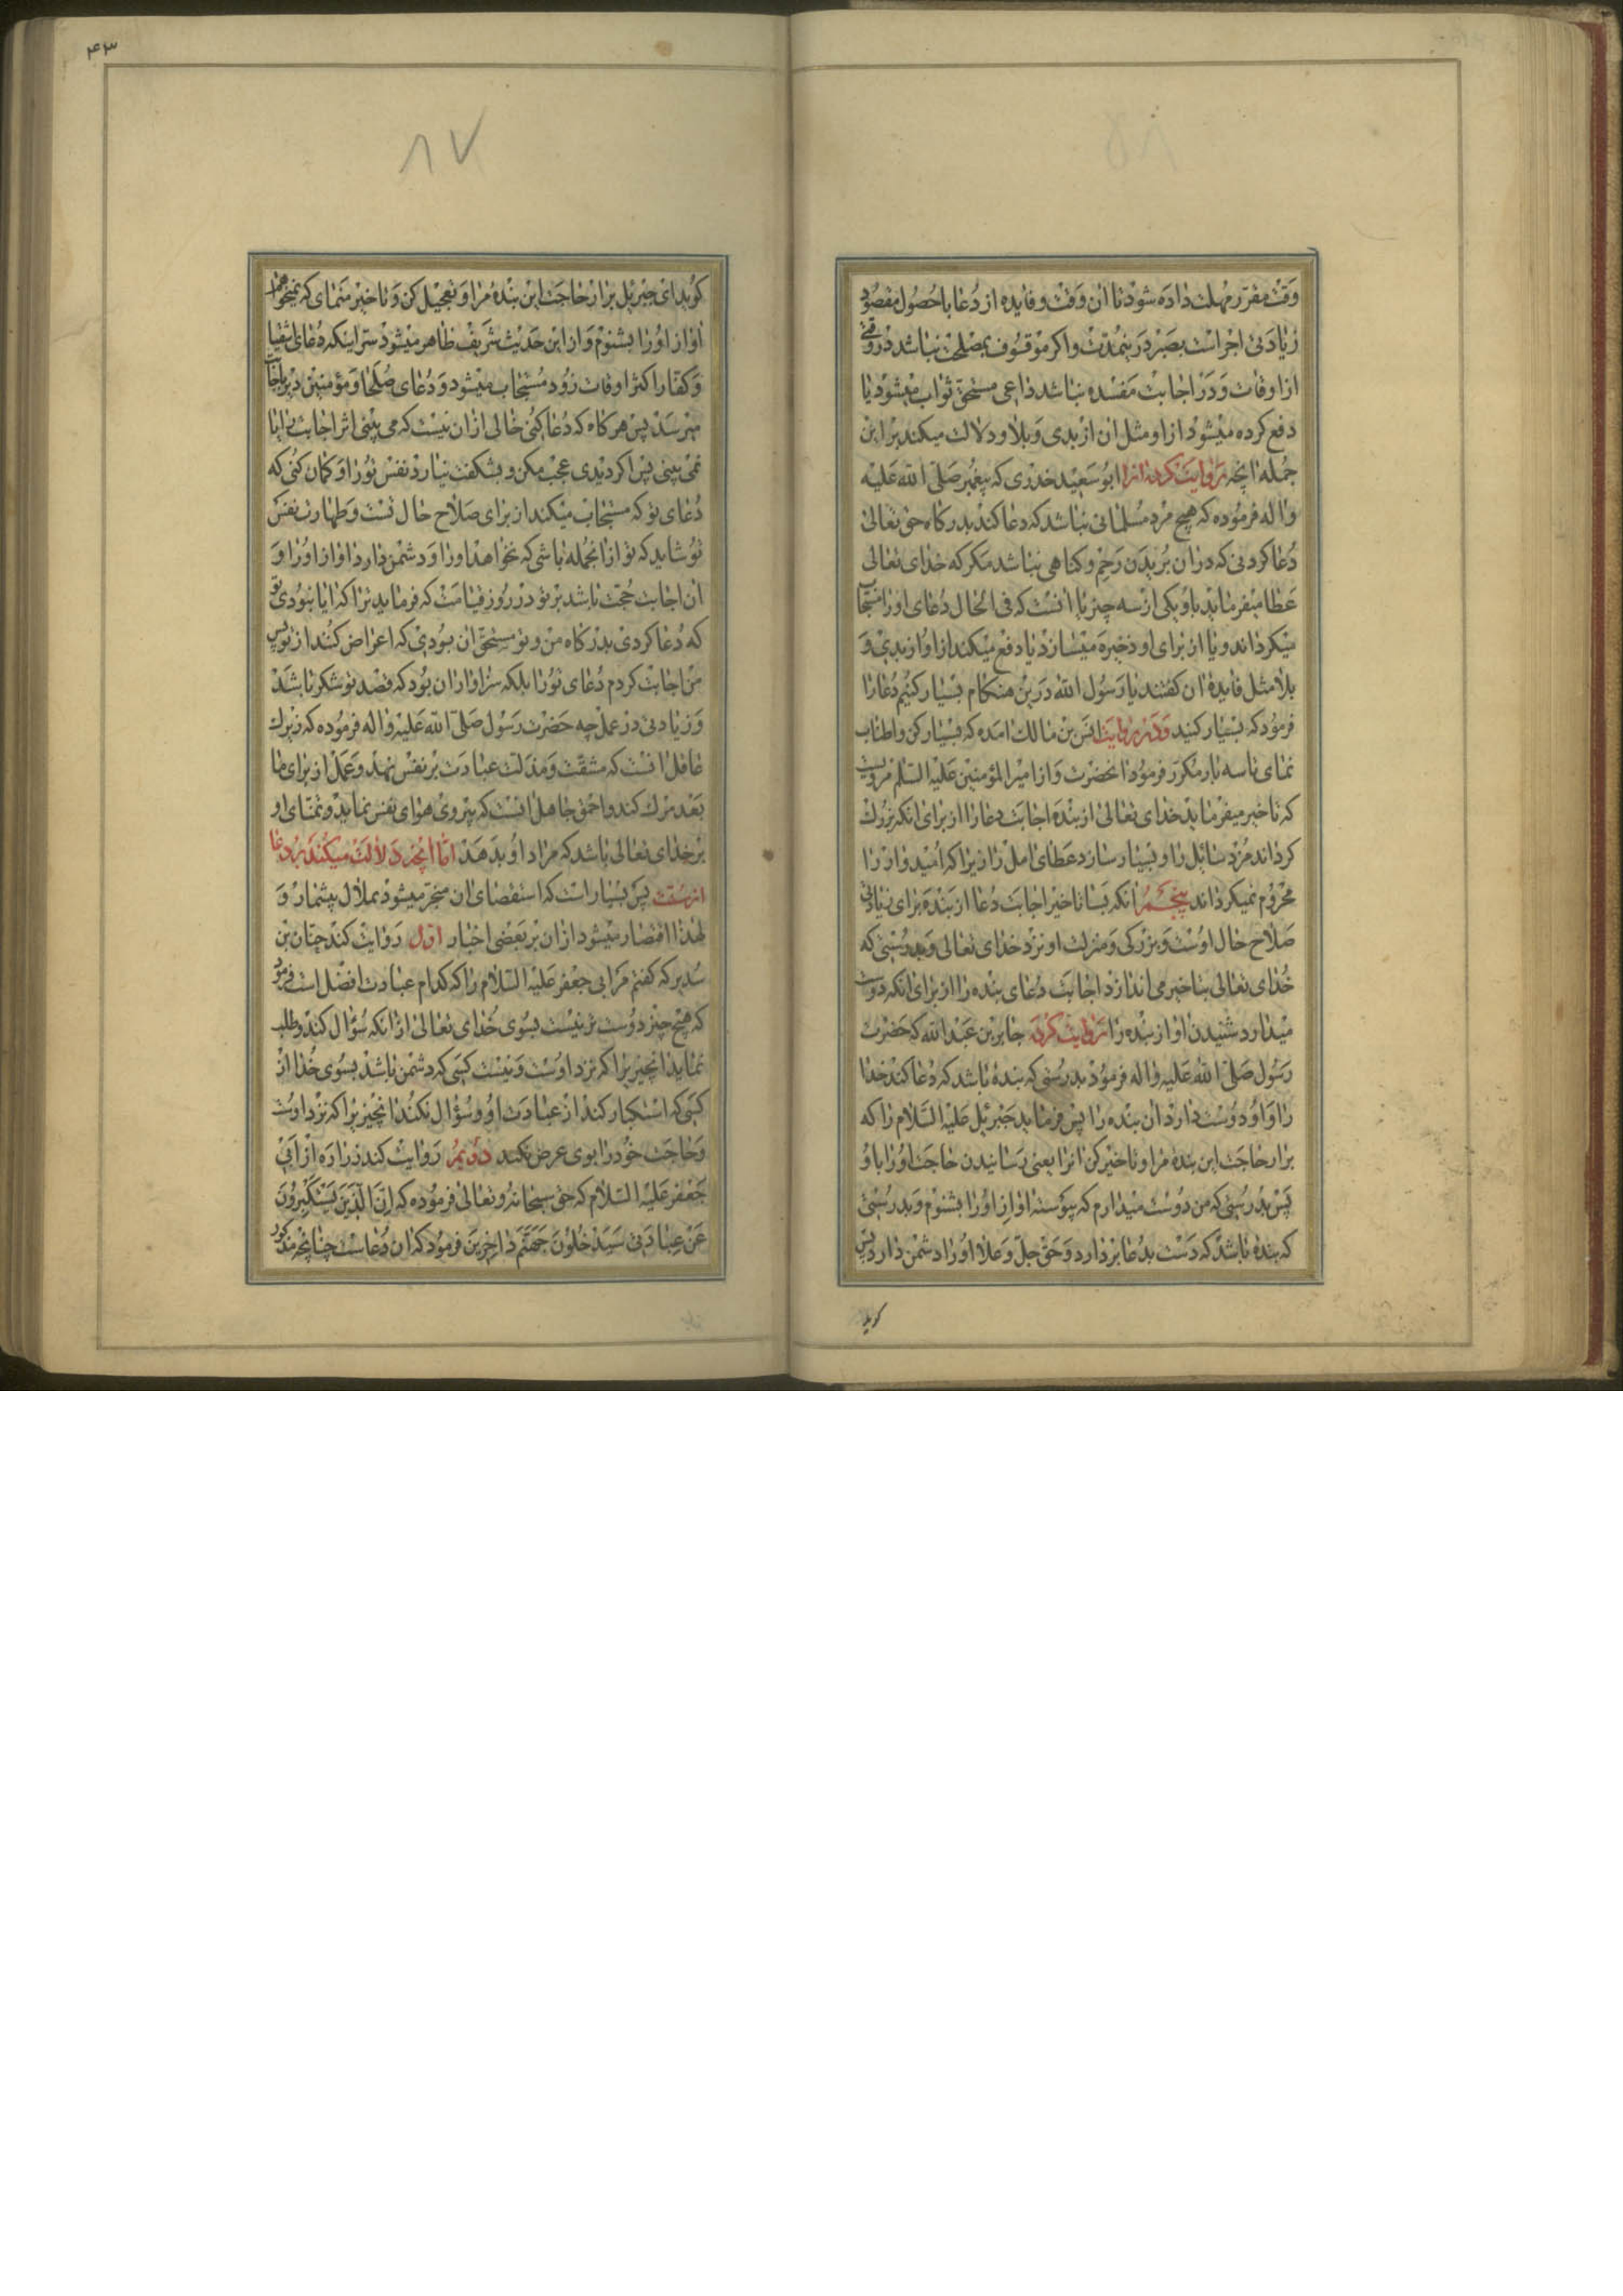 وقت مقرر مهلت داده شود تا ان وقت و فایده از دعا با حصول مقصود
زیادتی اجر است بصبر در ینمدت و اکر موقوف بمصلحت نباشد در وقتی
از اوقات و در اجابت مفسده نباشد داعی مستحق ثواب میشود یا
دفع کرده میشود از او مثل ان از بدی و بلا و دلالت میکند بر این
جمله انچه روایت کرده انرا ابوسعید خدری که پیغمبر صلی الله علیه
واله فرموده که هیچ مرد مسلمانی نباشد که دعا کند بدرکاه حق تعالی
دعا کردنی که در ان بریدن رحم و کناهی نباشد مکر که خدای تعالی
عطا میفرماید باو یکی از سه چیز یا انست که فی الحال دعای او را مستجاب
میکرداند و یا ان برای او ذخیره میسازد یا دفع میکند از او از بدی و
بلا مثل فایده ان کفتند یا رسول الله درین هنکام بسیار کنیم دعا را
فرمود که بسیار کنید و در روایت انس بن مالک امده که بسیار کن و اطناب
نمای تا سه بار مکرر فرمود انحضرت و از امیر المؤمنین علیه السلم مرویست
که تاخیر میفرماید خدای تعالی از بنده اجابت دعا را از برای انکه بزرک
کرداند مزد سایل را و بسیار سازد عطای امل را زیرا که امیدوار را
محروم نمیکرداند پنجم انکه بسا تاخیر اجابت دعا از بنده برای زیادتی
صلاح حال اوست و بزرکی و منزلت او نزد خدای تعالی و بدرستی که
خدای تعالی بتاخیر می اندازد اجابت دعای بنده را از برای انکه دوست
میدارد شنیدن اواز بنده را روایت کرده جابر بن عبد الله که حضرت
رسول صلی الله علیه واله فرمود بدرستی که بنده باشد که دعا کند خدا
را و او دوست دارد ان بنده را پس فرماید جبرئیل علیه السلام را که
برار حاجت این بنده مرا و تاخیر کن انرا یعنی رسانیدن حاجت او را باو
پس بدرستی که من دوست میدارم که پیوسته اواز او را بشنوم و بدرستی
که بنده باشد که دست بدعا بردارد و حق جل و علا او را دشمن دارد پس
کوید
۴۳
۸۷
کوید ای جبرئیل برار حاجت این بنده مرا و تعجیل کن و تاخیر منمای که نمیخواهم
اواز او را بشنوم و از این حدیث شریف ظاهر میشود سر اینکه دعای اشقیا
و کفار اکثر اوقات زود مستجاب میشود و دعای صلحا و مؤمنین دیر باجابت
میرسد پس هر کاه که دعا کنی خالی از ان نیست که می بینی اثر اجابت را یا
نمی بینی پس اکر دیدی عجب مکن و بشکفت نیارد نفس تو را و کمان کنی که
دعای تو که مستجاب میکند از برای صلاح حال تست و طهارت نفس
تو شاید که تو از انجمله باشی که نخواهد او را و دشمن دارد اواز او را و
ان اجابت حجت باشد بر تو در روز قیامت که فرماید ترا که ایا نبودی تو
که دعا کردی بدرکاه من و تو مستحق ان بودی که اعراض کنند از تو پس
من اجابت کردم دعای تو را بلکه سزاوار ان بود که قصد تو شکر باشد
و زیادتی در عمل چه حضرت رسول صلی الله علیه واله فرموده که زیرک
عاقل انست که مشقت و مذلت عبادت بر نفس نهد و عمل از برای ما
بعد مرک کند و احمق جاهل انست که پیروی هوای نفس نماید و تمنای او
بر خدای تعالی باشد که مراد او بدهد اما انچه دلالت میکند بر دعا
از سنت پس بسیار است که استقصای ان منجر میشود بملال بیشمار و
لهذا اقتصار میشود از ان بر بعضی اخبار اول روایت کند حنان بن
سدیر که کفتم مر ابی جعفر علیه السلام را که کدام عبادت افضل است فرمود
که هیچ چیز دوست تر نیست بسوی خدای تعالی از انکه سؤال کند و طلب
نماید انچیز را که نزد اوست و نیست کسی که دشمن باشد بسوی خدا از
کسی که استکبار کند از عبادت او و سؤال نکند انچیز را که نزد اوست
و حاجت خود را بوی عرض نکند دویم روایت کند زراره از ابی
جعفر علیه السلام که حق سبحانه و تعالی فرموده که ان الذین یستکبرون
عن عبادتی سیدخلون جهنم داخرین فرمود که ان دعاست چنانچه مذکور